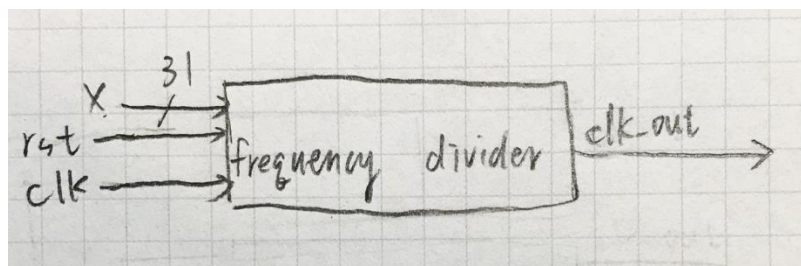 31
X
rst
clk
frequency divider
clk_out